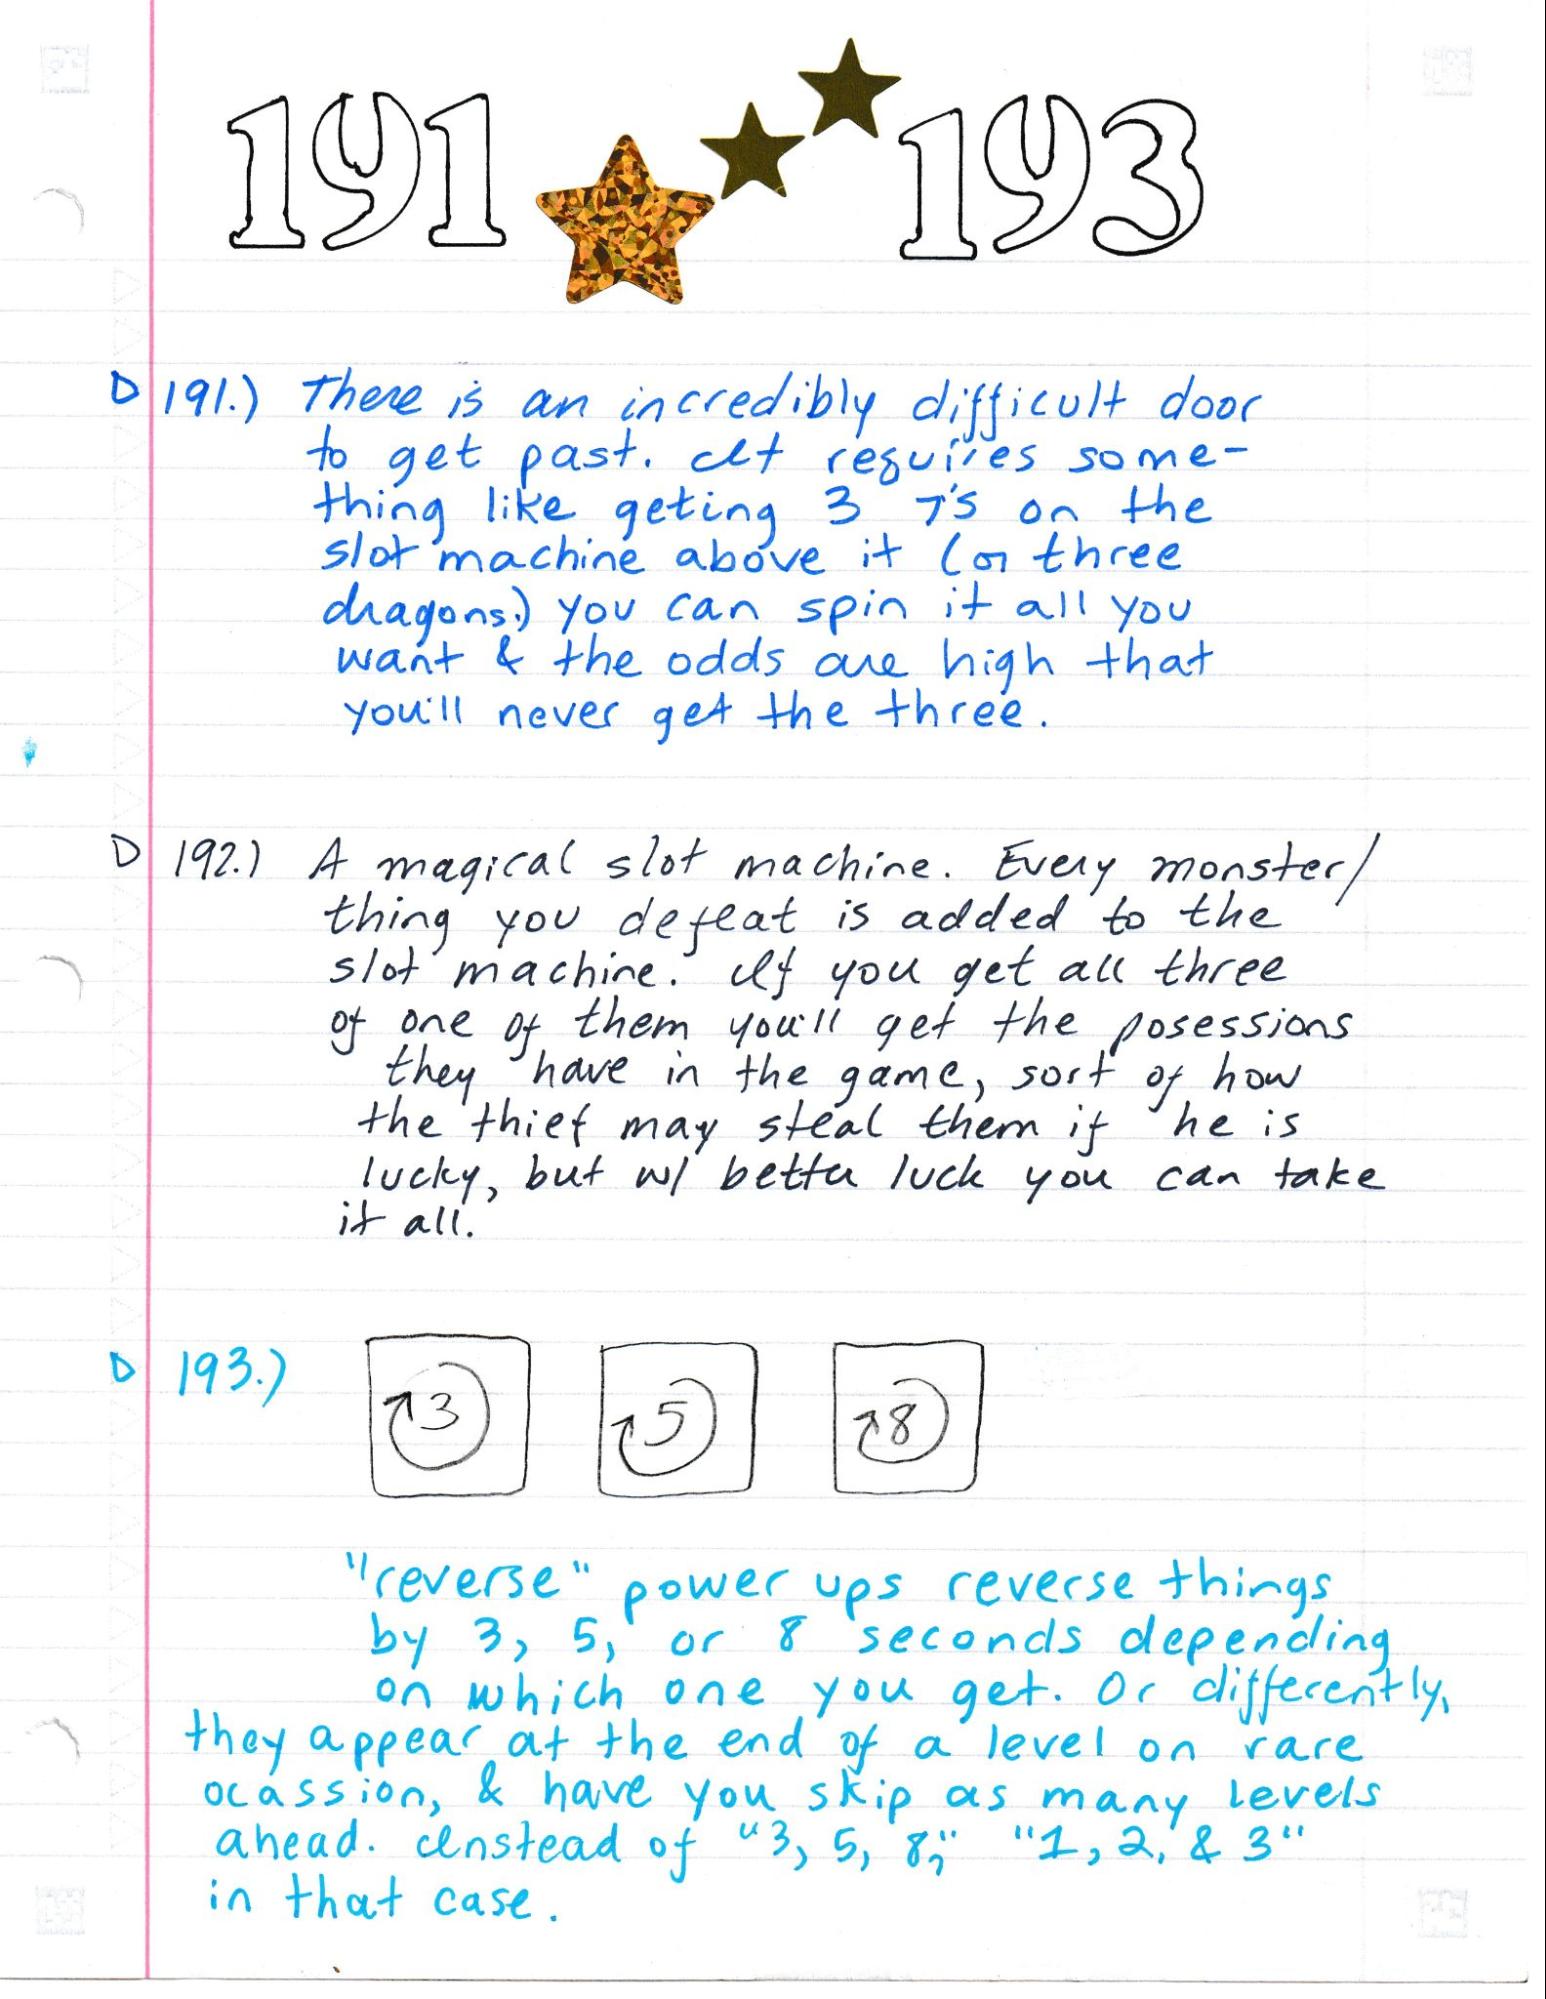 191 193
D 191.) There is an incredibly difficult door
to get past. It requires some-
thing like geting 3 7's on the
slot machine above it (or three
dragons.) you can spin it all you
want & the odds are high that
you'll never get the three.
D 192.) A magical slot machine. Every monster/
thing you defeat is added to the
slot machine. If you get all three
of one of them you'll get the posessions
they have in the game, sort of how
the thief may steal them if he is
lucky, but w/ better luck you can take
it all.
D 193.)
3 5 8
"reverse" power ups reverse things
by 3, 5, or 8 seconds depending
on which one you get. Or differently,
they appear at the end of a level on rare
ocassion, & have you skip as many levels
ahead. Instead of "3, 5, 8," "1, 2, & 3"
in that case.